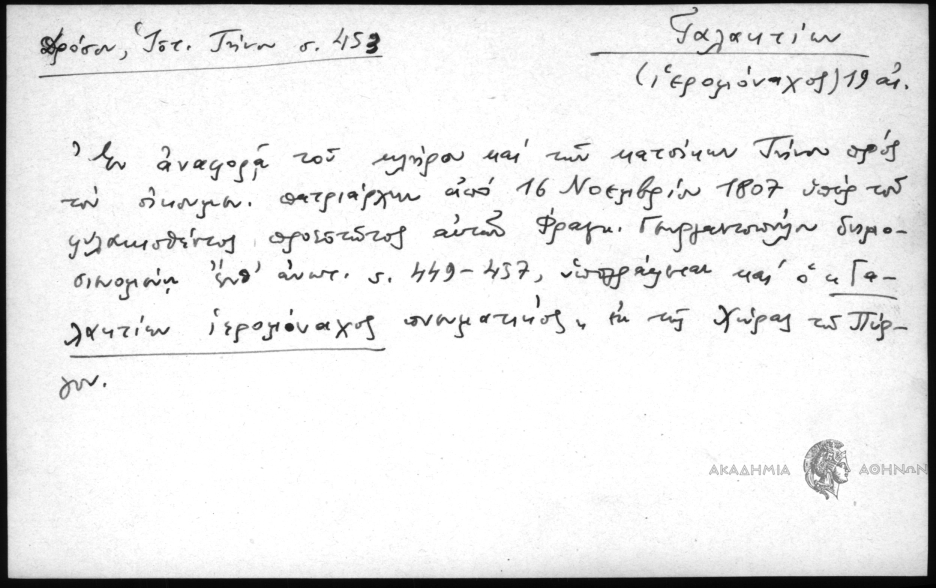 Δρόσου, Ἱστ. Τήνου σ. 453
Γαλακτίων
(ἱερομόναχος) 19 αἰ.
Ἐν ἀναφορᾷ τοῦ κλήρου καὶ τῶν κατοίκων Τήνου πρὸς
τὸν οἰκουμεν. πατριάρχην ἀπὸ 16 Νοεμβρίου 1807 ὑπὲρ τοῦ
φυλακισθέντος προεστῶτος αὐτῶν Φραγκ. δημο-
ἔνθ' ἀνωτ. σ. 449-457, ὑπογράφεται καὶ ὁ "Γα-
λακτίων ἱερομόναχος πνευματικὸς" ἐκ τῆς Χώρας τοῦ Πύρ-
γου.
ΑΚΑΔΗΜΙΑ ΑΘΗΝΩΝ